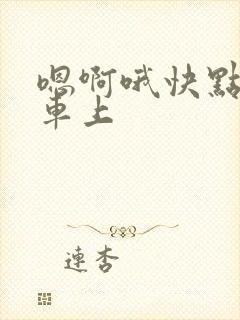 嗯啊哦快點
車上
連杏